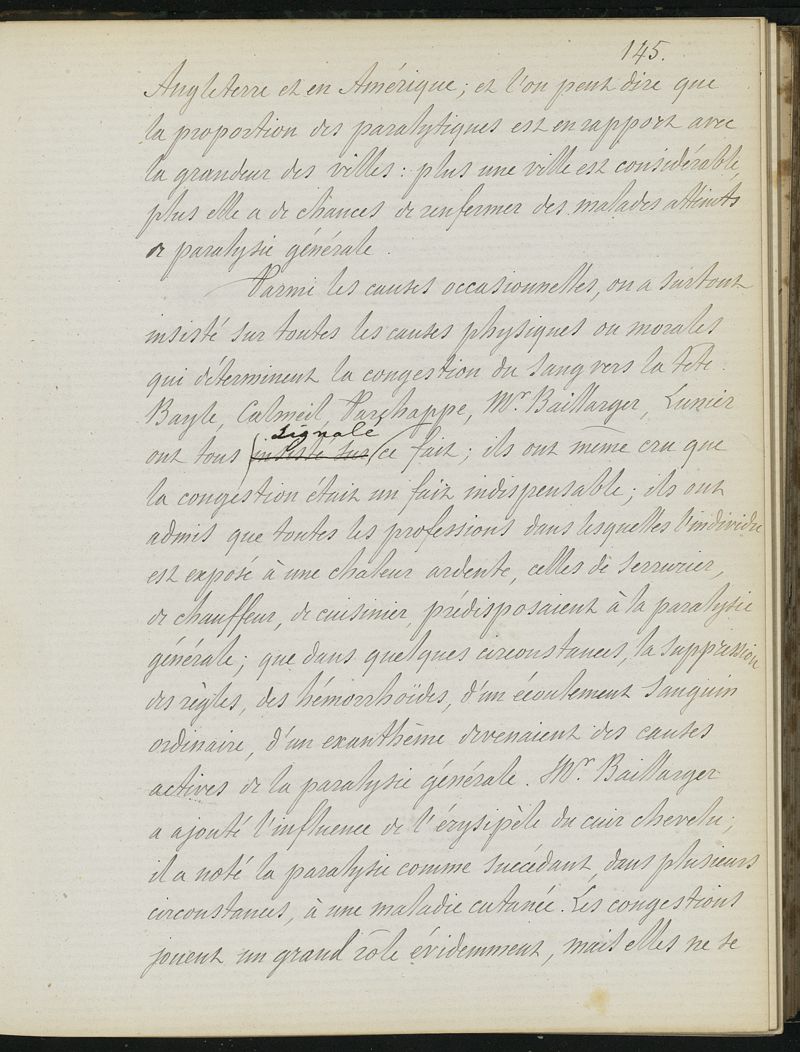 145.
Angleterre et en Amérique ; et l'on peut dire que
la proportion des paralytiques est en rapport avec
la grandeur des villes : plus une ville est considérable,
plus elle a de chances de renfermer des malades atteints
de paralysie générale.
Parmi les causes occasionnelles, on a surtout
insisté sur toutes les causes physiques ou morales
qui déterminent la congestion du sang vers la tête.
Bayle, Calmeil, Parchappe, Mr. Baillarger, Lunier
signalé
ont tous (insisté sur) ce fait ; ils ont même cru que
la congestion était un fait indispensable ; ils ont
admis que toutes les professions dans lesquelles l'individu
est exposé à une chaleur ardente, celles de serrurier,
de chauffeur, de cuisinier, prédisposaient à la paralysie
générale ; que dans quelques circonstances, la suppression
des règles, des hémorrhoïdes, d'un écoulement sanguin
ordinaire, d'un exanthème devenaient des causes
actives de la paralysie générale. Mr. Baillarger
a ajouté l'influence de l'érysipèle du cuir chevelu ;
il a noté la paralysie comme succédant, dans plusieurs
circonstances, à une maladie cutanée. Les congestions
jouent un grand rôle évidemment, mais elles ne se